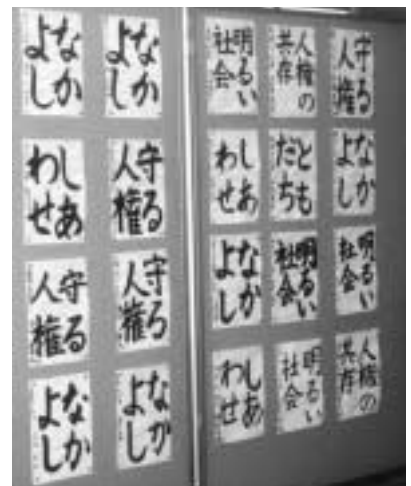 なか
よし
なか
よし
しあ
わせ
守る
人権
守る
人権
守る
人権
なか
よし
なか
よし
明るい
社会
人権の
共存
守る
人権
しあ
わせ
とも
だち
なか
よし
なか
よし
明るい
社会
明るい
社会
しあ
わせ
明るい
社会
人権の
共存